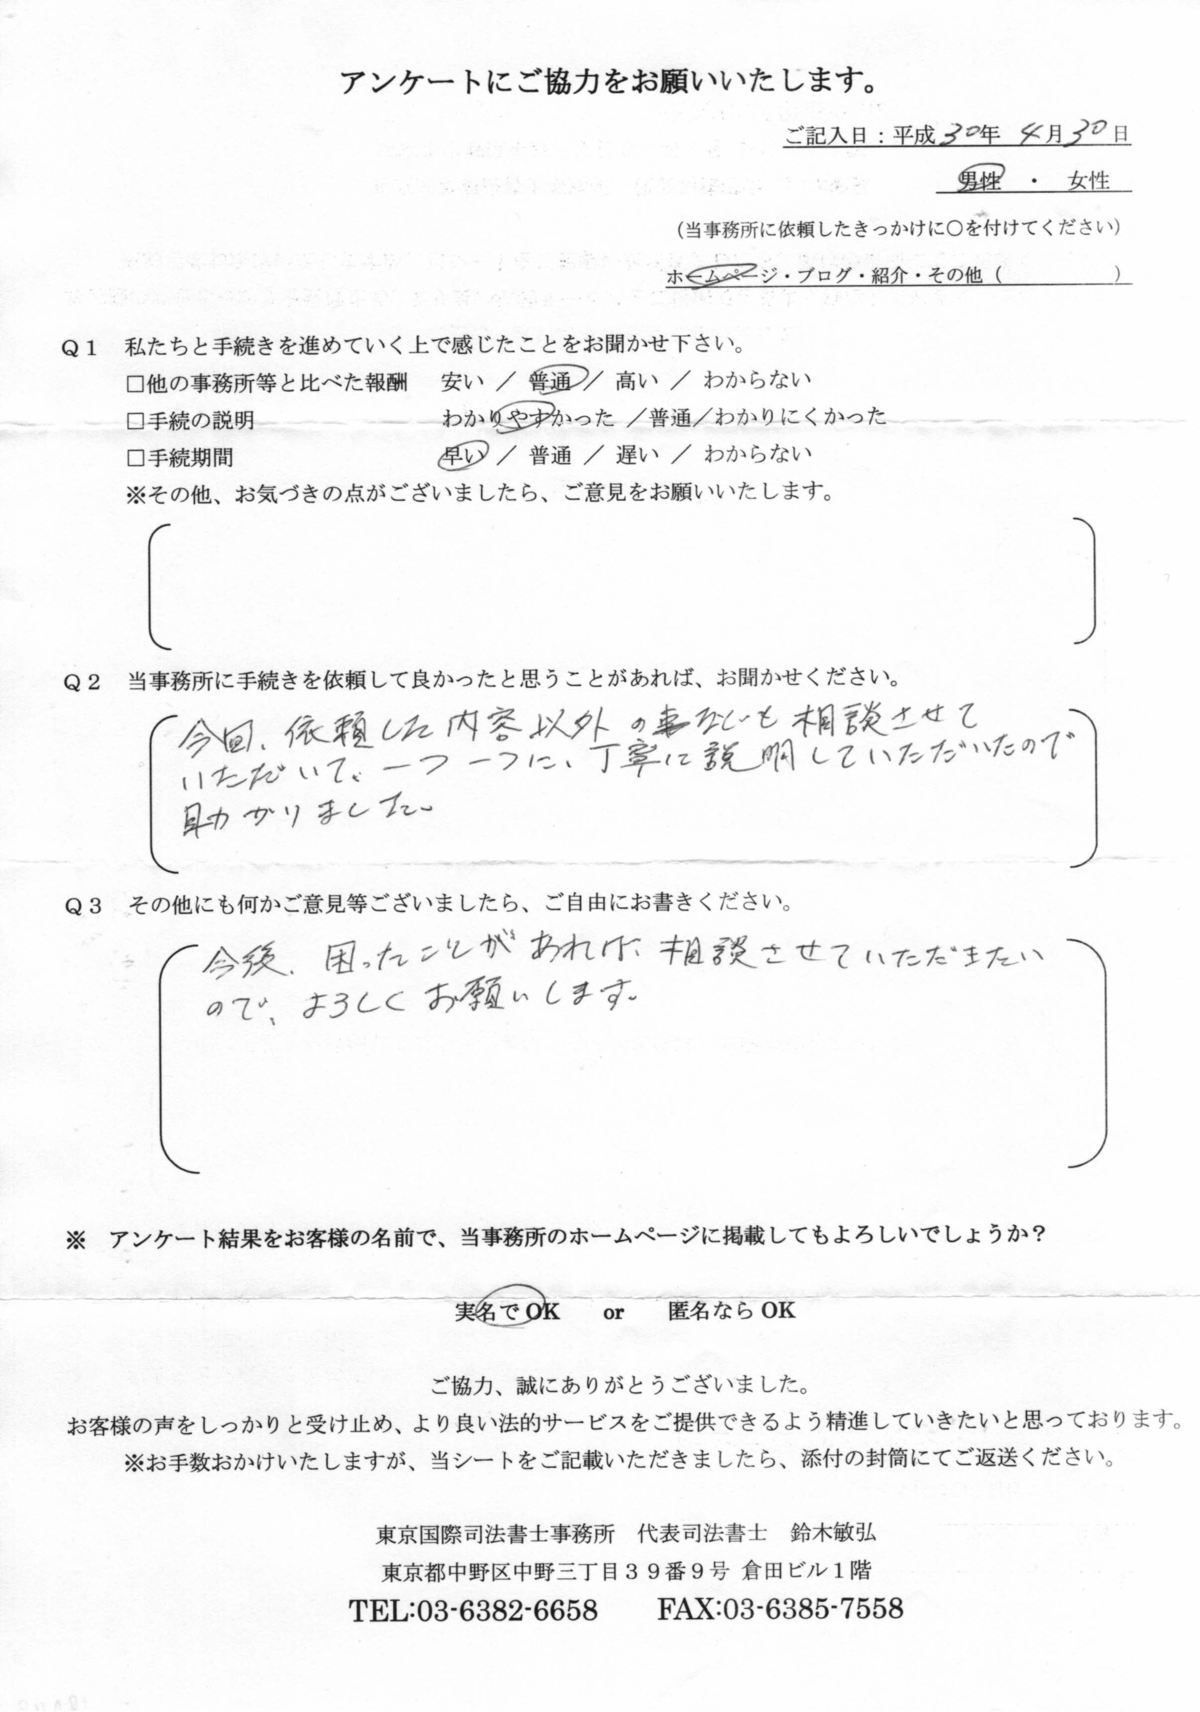 アンケートにご協力をお願いいたします。
ご記入日：平成30年 4月30日
男性 ・ 女性
（当事務所に依頼したきっかけに〇を付けてください）
ホームページ・ブログ・紹介・その他（ ）
Q1 私たちと手続きを進めていく上で感じたことをお聞かせ下さい。
□他の事務所等と比べた報酬 安い ／ 普通 ／ 高い ／ わからない
□手続の説明 わかりやすかった ／普通／わかりにくかった
□手続期間 早い ／ 普通 ／ 遅い ／ わからない
※その他、お気づきの点がございましたら、ご意見をお願いいたします。
Q2 当事務所に手続きを依頼して良かったと思うことがあれば、お聞かせください。
今回、依頼した内容以外の事なども相談させて
いただいて、一つ一つに、丁寧に説明していただいたので
助かりました。
Q3 その他にも何かご意見等ございましたら、ご自由にお書きください。
今後、困ったことがあれば、相談させていただきたい
ので、よろしくお願いします。
※ アンケート結果をお客様の名前で、当事務所のホームページに掲載してもよろしいでしょうか？
実名でOK or 匿名ならOK
ご協力、誠にありがとうございました。
お客様の声をしっかりと受け止め、より良い法的サービスをご提供できるよう精進していきたいと思っております。
※お手数おかけいたしますが、当シートをご記載いただきましたら、添付の封筒にてご返送ください。
東京国際司法書士事務所 代表司法書士 鈴木敏弘
東京都中野区中野三丁目３９番９号 倉田ビル１階
TEL:03-6382-6658 FAX:03-6385-7558